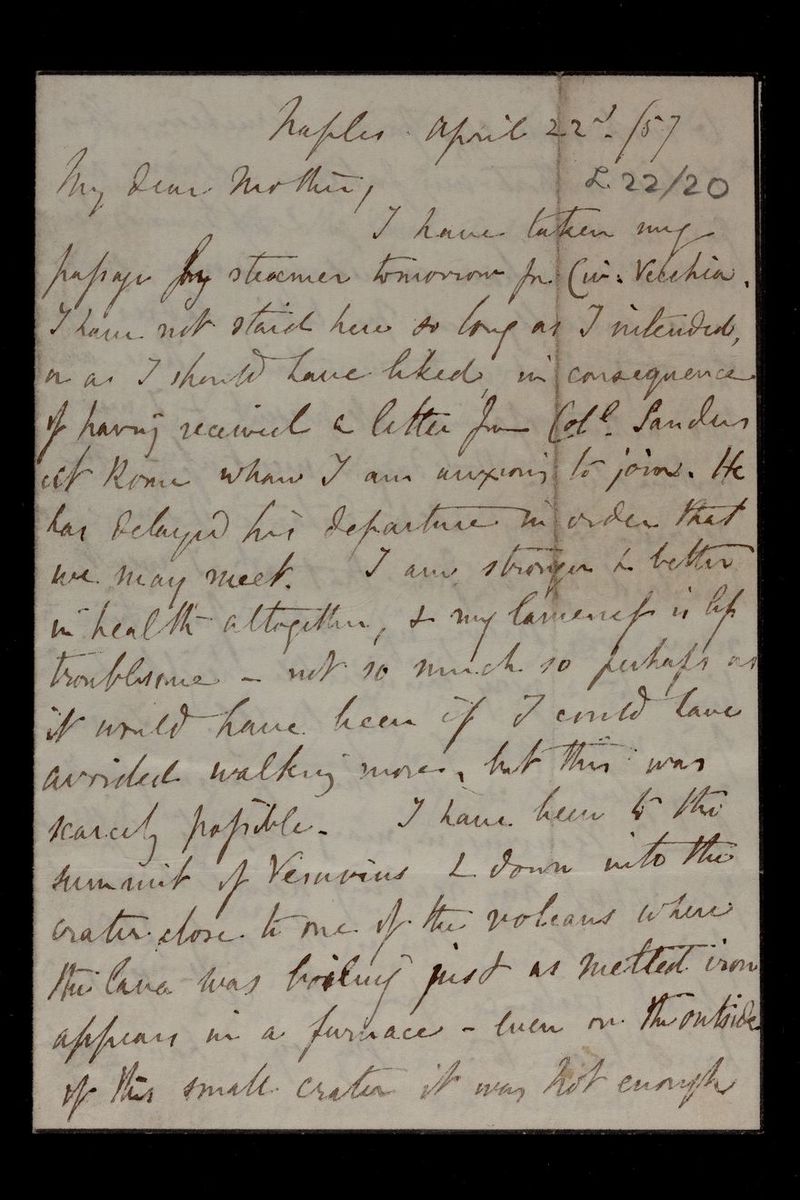 Naples April 22nd. /57
L. 22/20
My dear Mother,
I have taken my
passage by steamer tomorrow for Civ: Vecchia.
I have not staid here so long as I intended,
or as I should have liked, in consequence
of having received a letter from Coll. Sanders
at Rome whom I am anxious to join. He
has delayed his departure in order that
we may meet. I am stronger & better
in health altogether, & my lameness is less
troublesome - not so much so perhaps as
it would have been if I could have
avoided walking more, but this was
scarcely possible - I have been to the
summit of Vesuvius & down into the
crater close to one of the volcans where
the lava was boiling just as melted iron
appears in a furnace - even on the outside
of this small crater it was hot enough